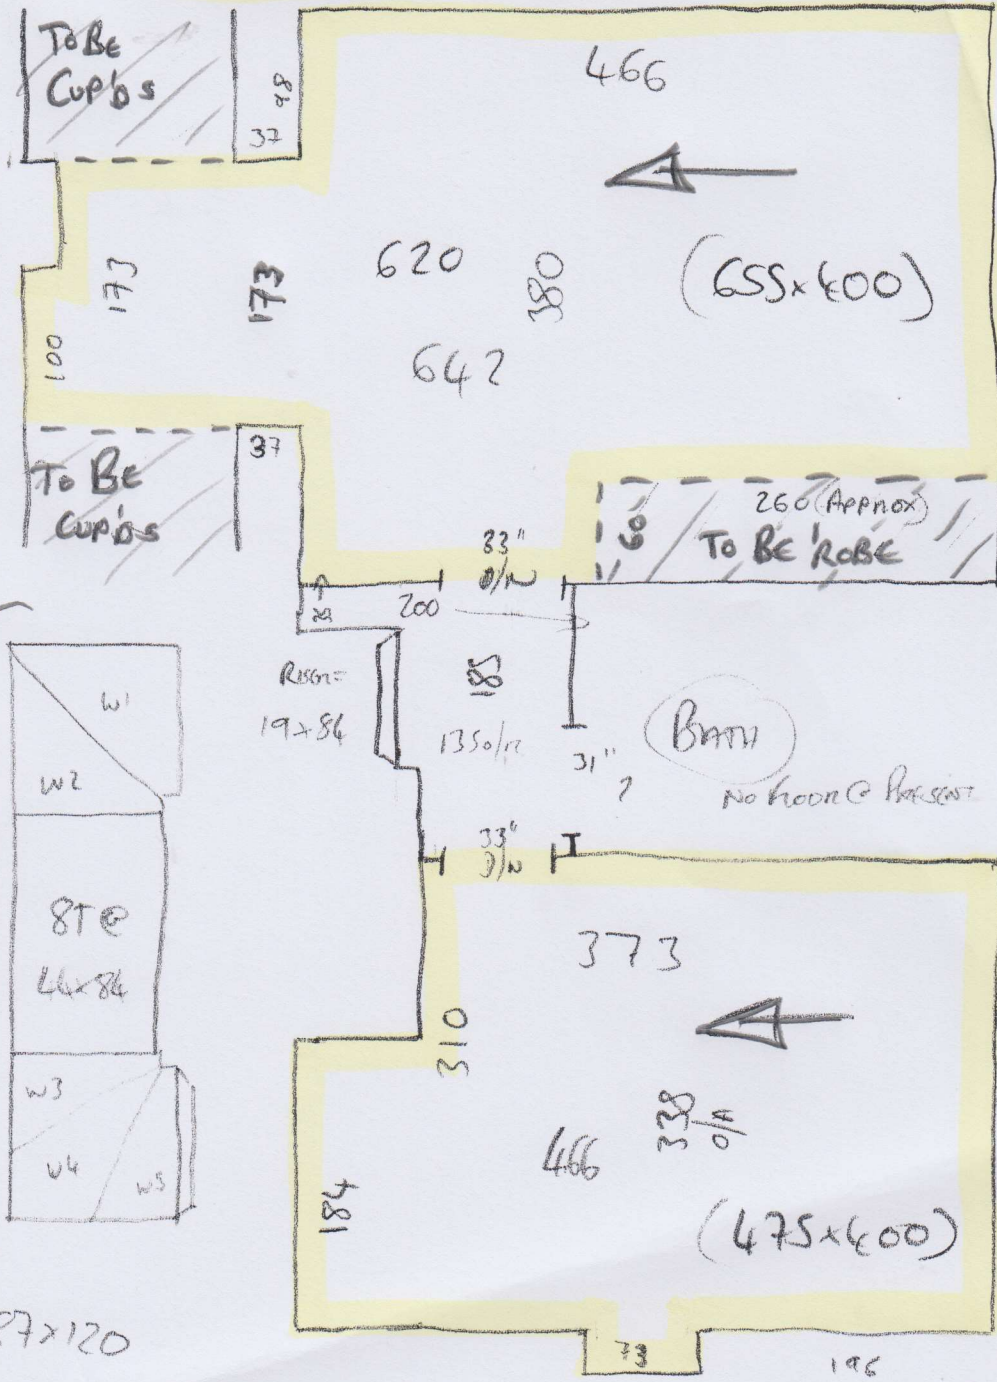 To BE
CUP'DS
84
37
466
620
380
(655x400)
173
173
100
642
To BE
CUP'DS
37
260 (APPROX)
60
To BE 'ROBE
33"
D/W
200
RISER=
19x84
185
135 O/R
31"
?
BATH
No FLOOR @ PRESENT
33"
D/W
W1
W2
8T @
44x84
W3
W4
W5
373
310
338
O/A
466
184
(475x400)
27x120
73
196